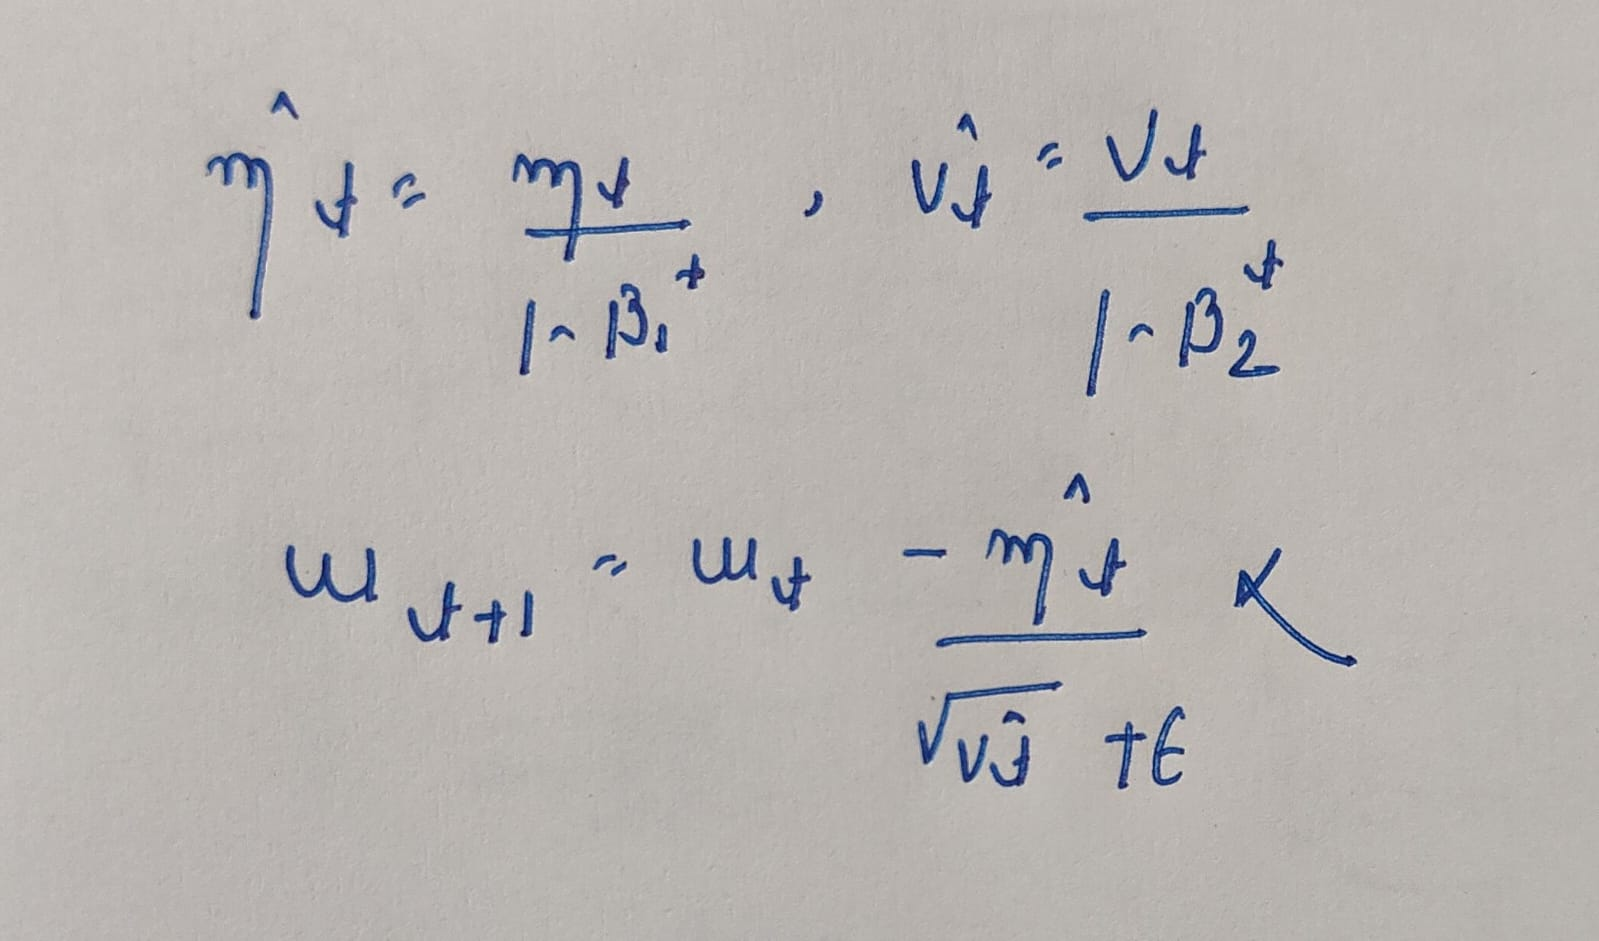 m̂_t = m_t / (1 - β₁^t) , v̂_t = v_t / (1 - β₂^t)
w_{t+1} = w_t - m̂_t / (√v̂_t + ε) α